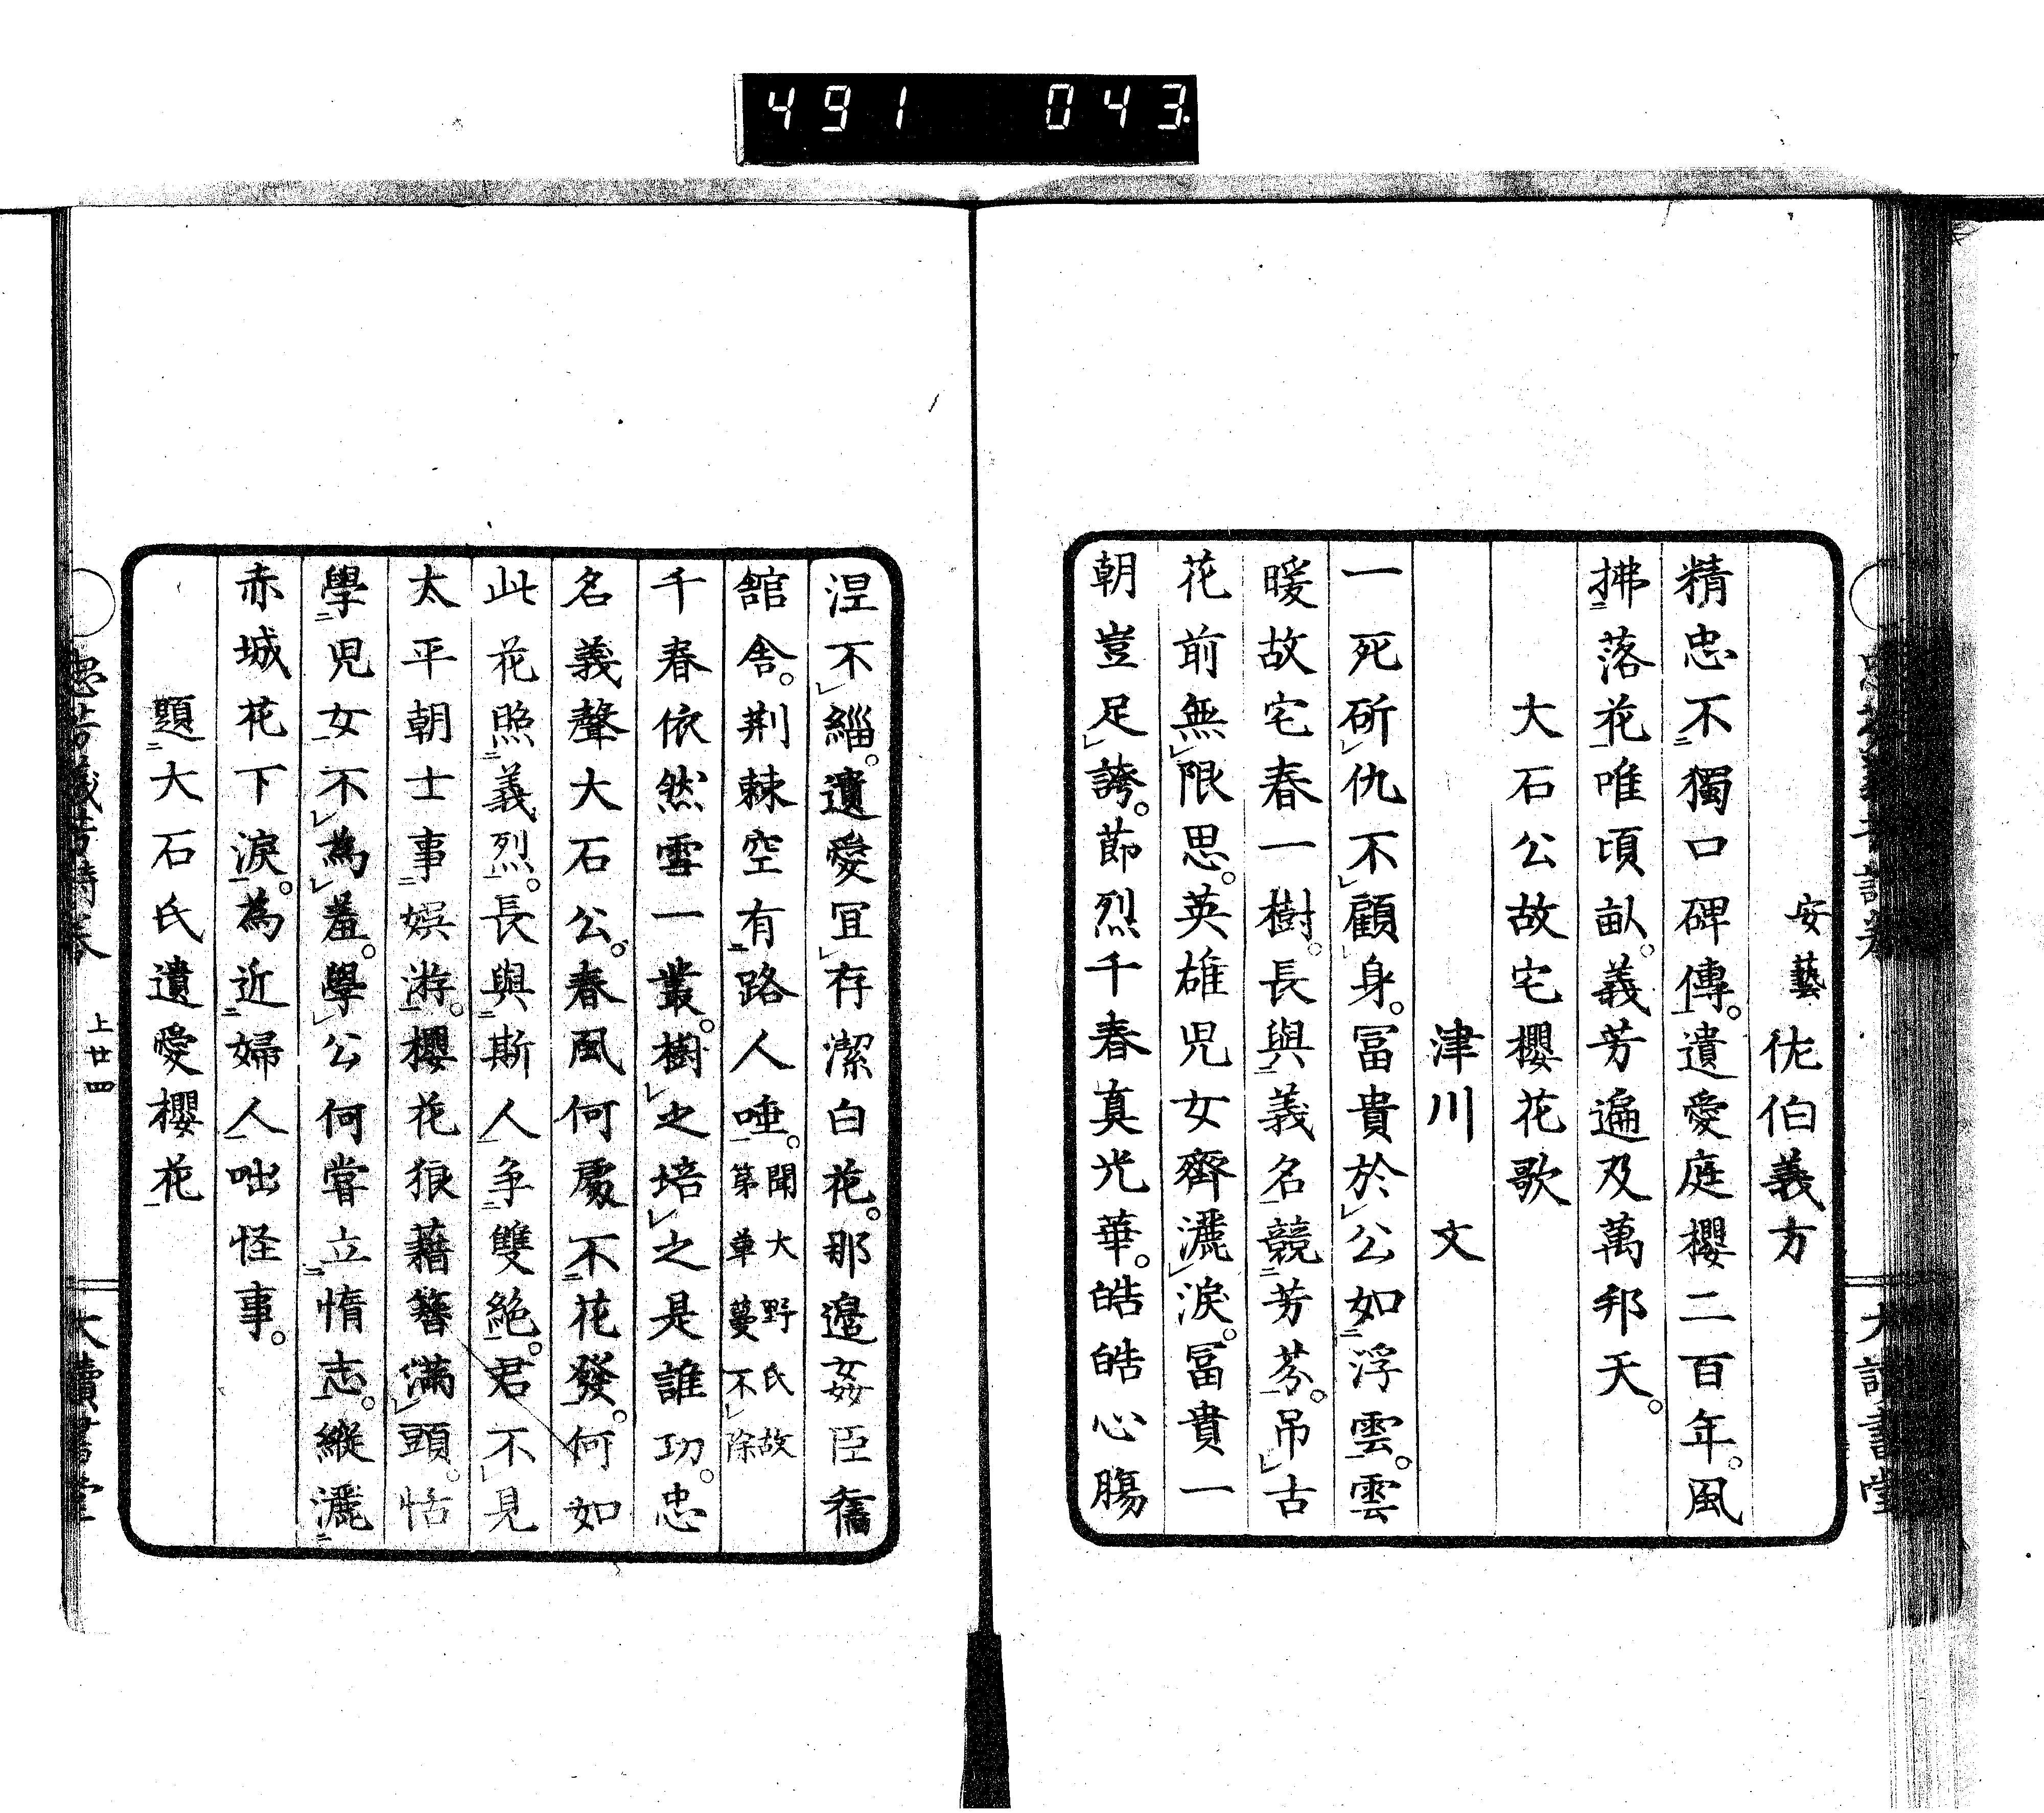 491 043
安藝 佐伯義方
精忠不獨口碑傳。遺愛庭櫻二百年。風
拂落花唯頃畝。義芳遍及萬邦天。
大石公故宅櫻花歌
津川 文
一死斫仇不顧身。冨貴於公如浮雲。雲
暖故宅春一樹。長與義名競芳芬。吊古
花前無限思。英雄児女齊灑淚。冨貴一
朝豈足誇。節烈千春真光華。皓皓心膓
涅不緇。遺愛冝存潔白花。那邉姦臣舊
舘舎。荆棘空有路人唾。聞大野氏故第草蔓不除
千春依然雪一叢。樹之培之是誰功。忠
名義聲大石公。春風何處不花發。何如
此花照義烈。長與斯人争雙絶。君不見
太平朝士事娯游。櫻花狼藉簪滿頭。恬
學児女不為羞。學公何甞立惰志。縱灑
赤城花下淚。為近婦人咄怪事。
題大石氏遺愛櫻花
上廿四